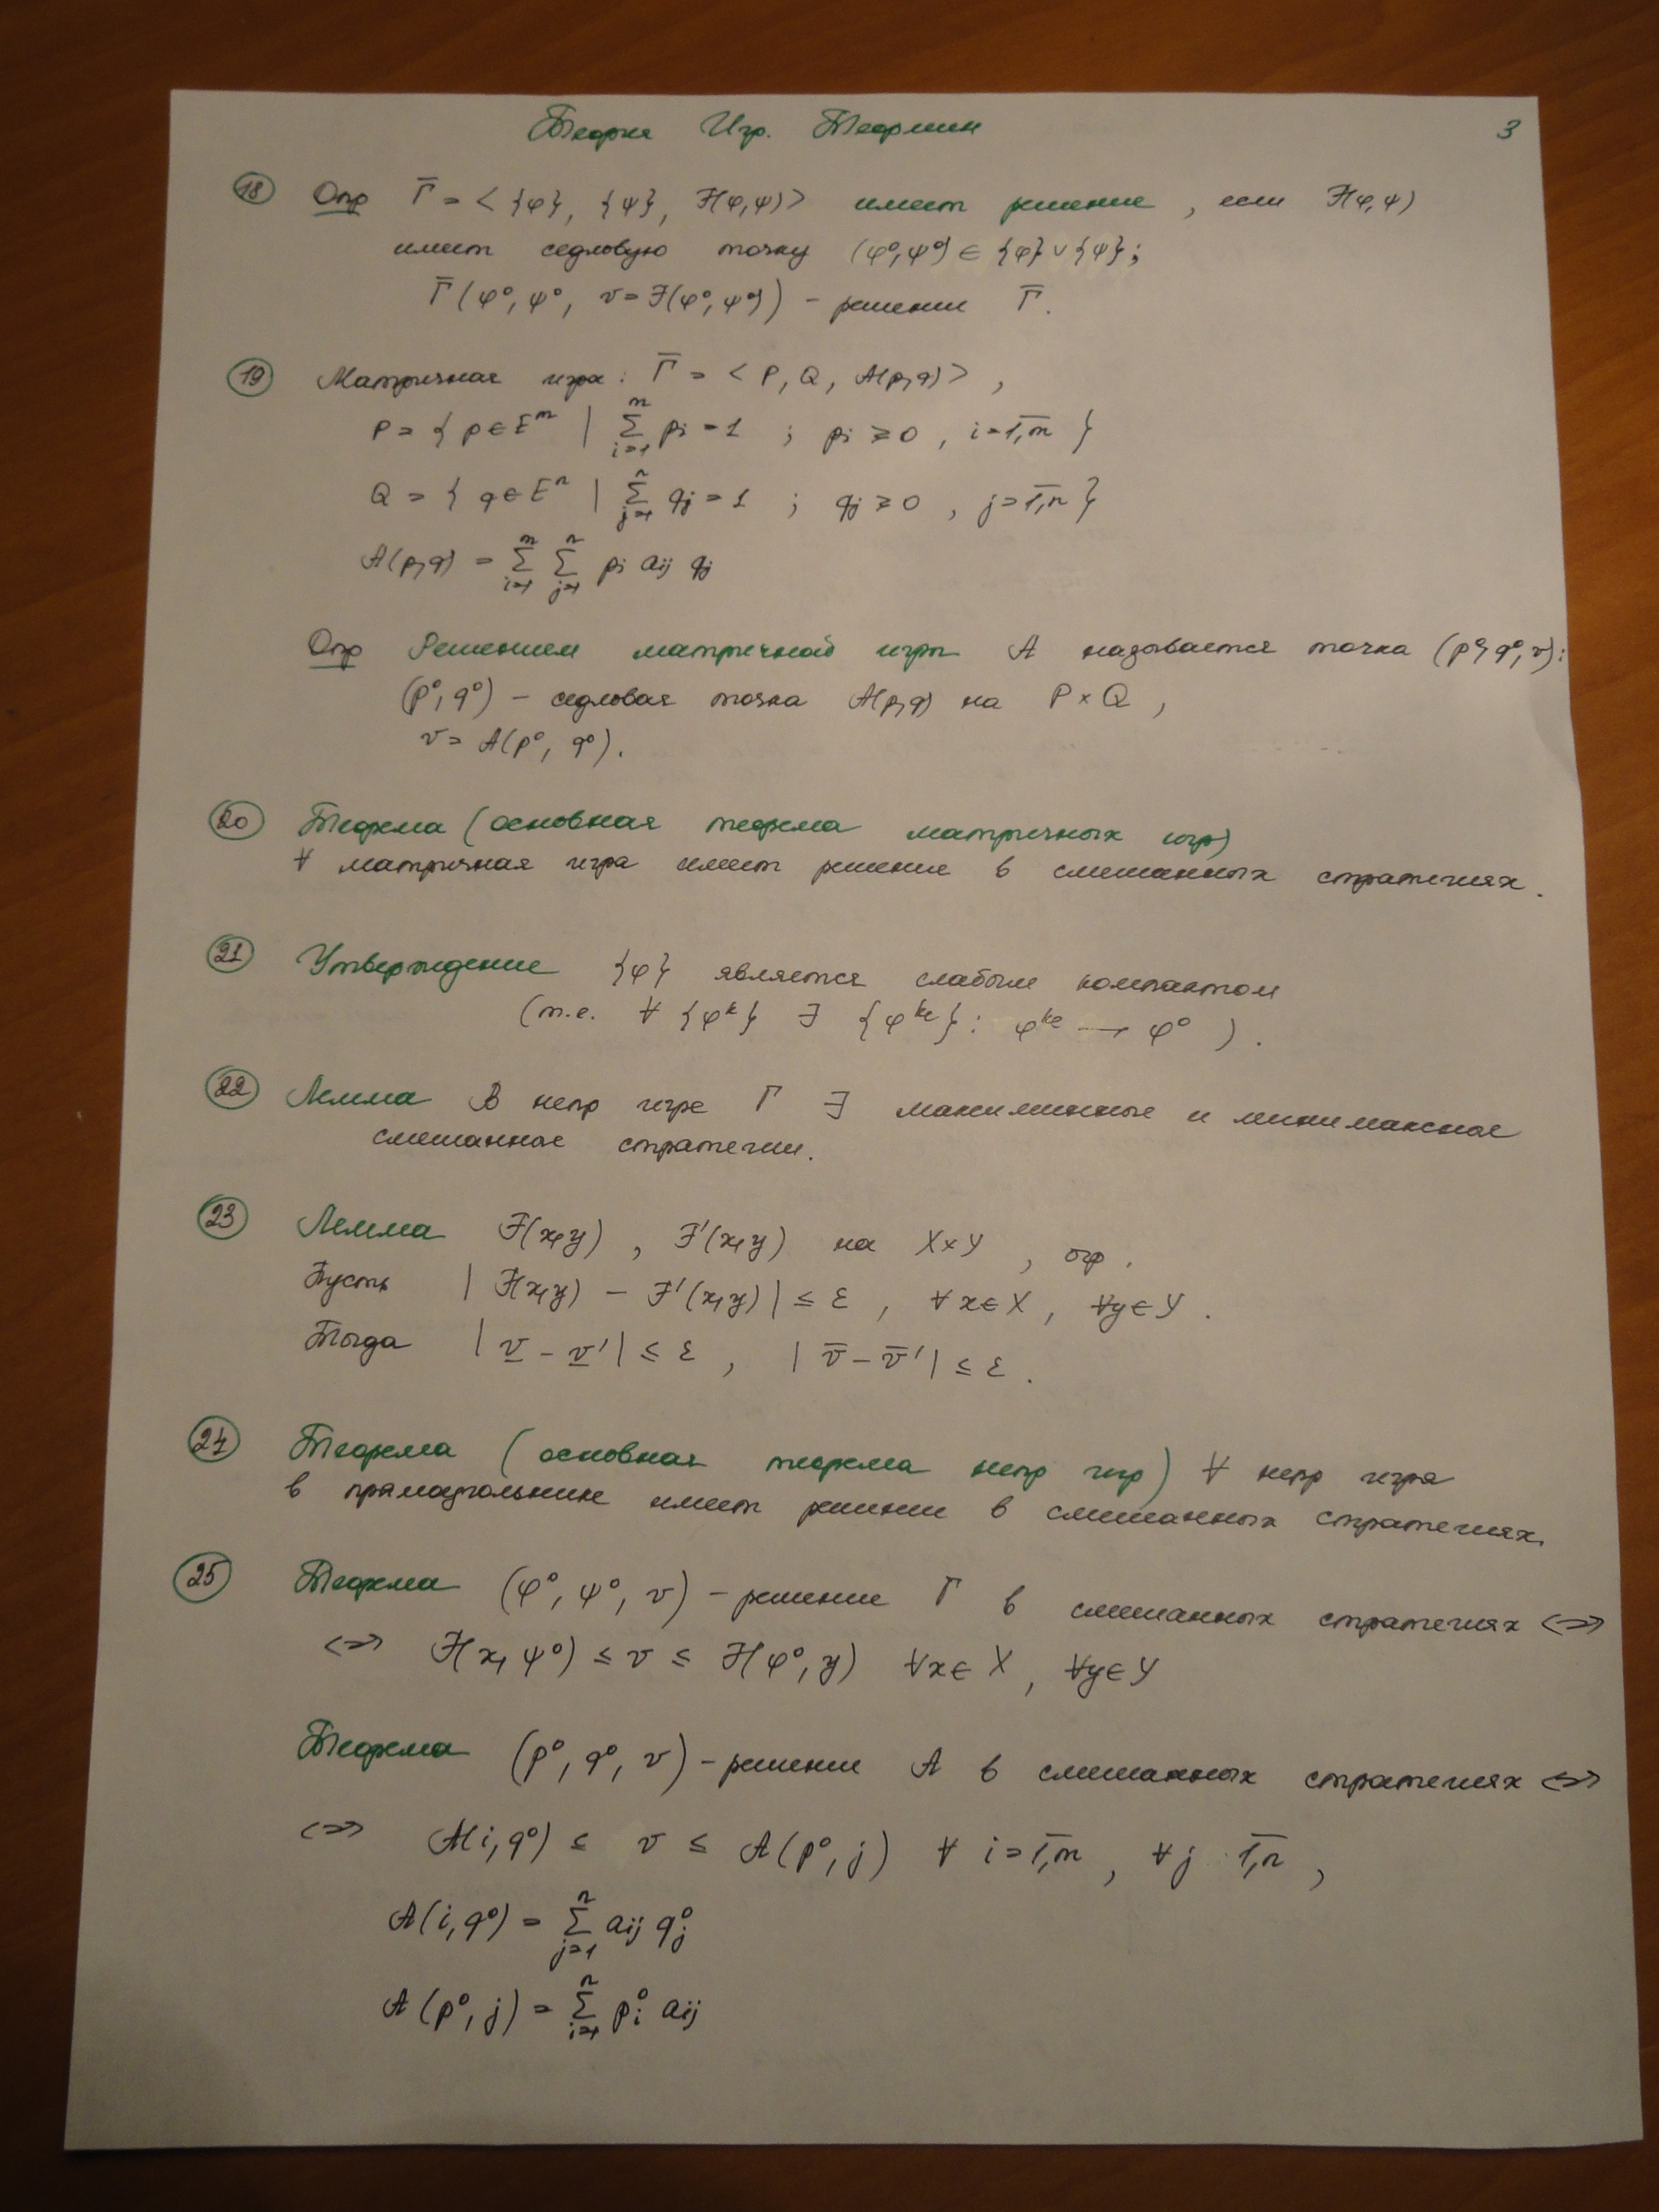 Теория Игр. Теормин 3
18 Опр Γ̅ = < {φ}, {ψ}, F(φ,ψ) > имеет решение, если F(φ,ψ)
имеет седловую точку (φ⁰,ψ⁰) ∈ {φ} ∨ {ψ};
Γ̅ (φ⁰, ψ⁰, v = F(φ⁰,ψ⁰)) – решение Γ̅.
19 Матричная игра: Γ̅ = < P, Q, A(p,q) >,
P = { p ∈ E^m | ∑_{i=1}^m p_i = 1 ; p_i ≥ 0, i = 1,m̅ }
Q = { q ∈ E^n | ∑_{j=1}^n q_j = 1 ; q_j ≥ 0, j = 1,n̅ }
A(p,q) = ∑_{i=1}^m ∑_{j=1}^n p_i a_ij q_j
Опр Решением матричной игры A называется точка (p⁰, q⁰, v):
(p⁰, q⁰) – седловая точка A(p,q) на P × Q,
v = A(p⁰, q⁰).
20 Теорема (основная теорема матричных игр)
∀ матричная игра имеет решение в смешанных стратегиях.
21 Утверждение {φ} является слабым компактом
(т.е. ∀ {φ^k} ∃ {φ^{k_l}}: φ^{k_l} → φ⁰).
22 Лемма В непр игре Γ ∃ максиминные и минимаксные
смешанные стратегии.
23 Лемма F(x,y), F'(x,y) на X×Y, огр.
Пусть | F(x,y) – F'(x,y) | ≤ ε, ∀x∈X, ∀y∈Y.
Тогда | v̲ – v̲' | ≤ ε, | v̅ – v̅' | ≤ ε.
24 Теорема (основная теорема непр игр) ∀ непр игра
в прямоугольнике имеет решение в смешанных стратегиях.
25 Теорема (φ⁰, ψ⁰, v) – решение Γ в смешанных стратегиях <=>
<=> F(x, ψ⁰) ≤ v ≤ F(φ⁰, y) ∀x∈X, ∀y∈Y
Теорема (p⁰, q⁰, v) – решение A в смешанных стратегиях <=>
<=> A(i, q⁰) ≤ v ≤ A(p⁰, j) ∀ i = 1,m̅, ∀ j 1,n̅,
A(i, q⁰) = ∑_{j=1}^n a_ij q_j⁰
A(p⁰, j) = ∑_{i=1}^n p_i⁰ a_ij